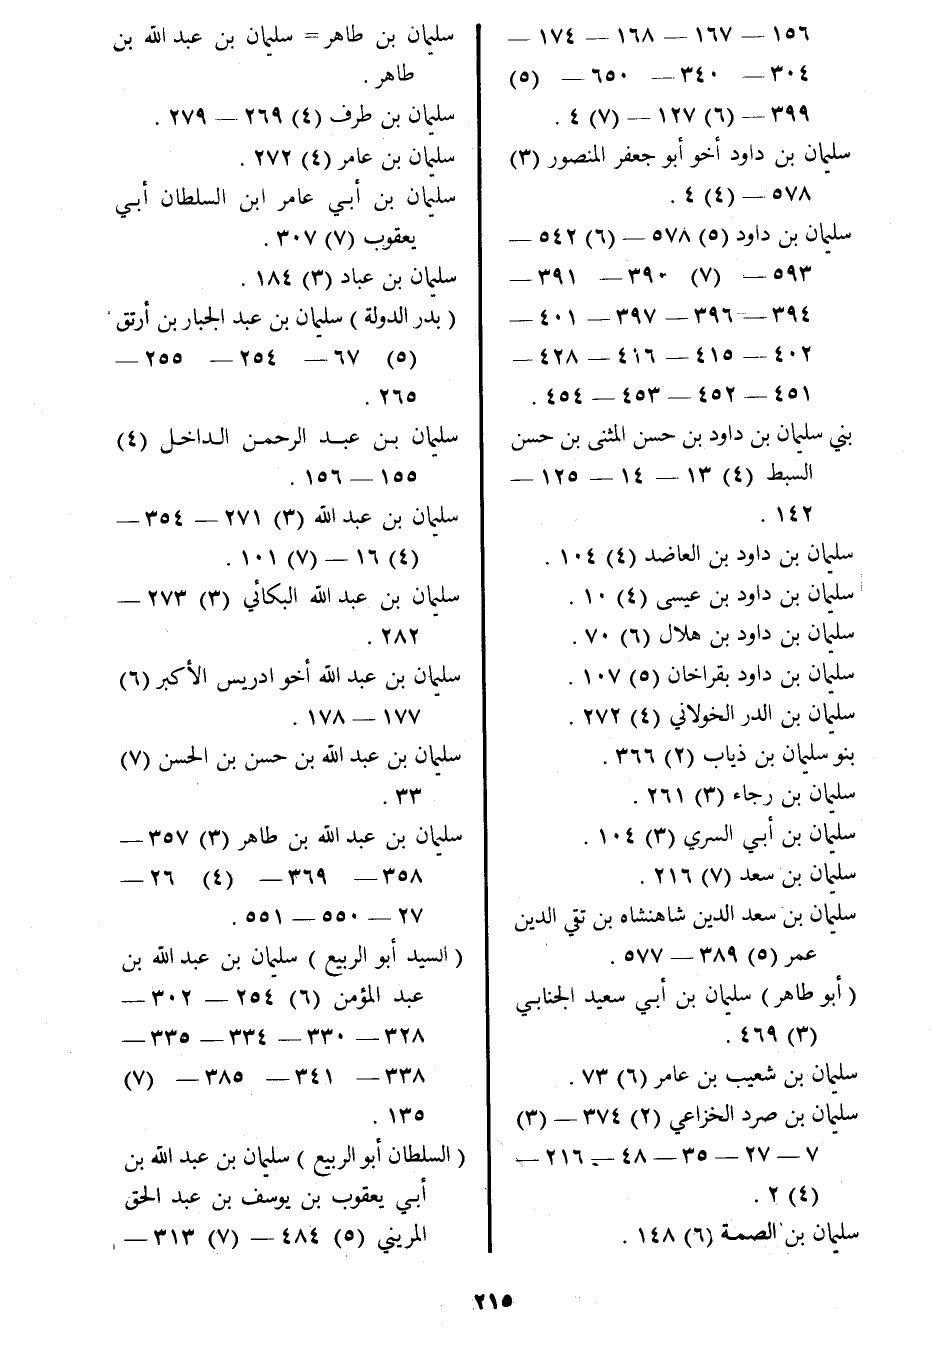 ١٥٦ – ١٦٧ – ١٦٨ – ١٧٤ –
٣٠٤ – ٣٤٠ – ٦٥٠ – (٥)
٣٩٩ – (٦) ١٢٧ – (٧) ٤ .
سليمان بن داود أخو أبو جعفر المنصور (٣)
٥٧٨ – (٤) ٤ .
سليمان بن داود (٥) ٥٧٨ – (٦) ٥٤٢ –
٥٩٣ – (٧) ٣٩٠ – ٣٩١ –
٣٩٤ – ٣٩٦ – ٣٩٧ – ٤٠١ –
٤٠٢ – ٤١٥ – ٤١٦ – ٤٢٨ –
٤٥١ – ٤٥٢ – ٤٥٣ – ٤٥٤ .
بني سليمان بن داود بن حسن المثنى بن حسن
السبط (٤) ١٣ – ١٤ – ١٢٥ –
١٤٢ .
سليمان بن داود بن العاضد (٤) ١٠٤ .
سليمان بن داود بن عيسى (٤) ١٠ .
سليمان بن داود بن هلال (٦) ٧٠ .
سليمان بن داود بقراخان (٥) ١٠٧ .
سليمان بن الدر الخولاني (٤) ٢٧٢ .
بنو سليمان بن ذياب (٢) ٣٦٦ .
سليمان بن رجاء (٣) ٢٦١ .
سليمان بن أبي السري (٣) ١٠٤ .
سليمان بن سعد (٧) ٢١٦ .
سليمان بن سعد الدين شاهنشاه بن تقي الدين
عمر (٥) ٣٨٩ – ٥٧٧ .
( أبو طاهر ) سليمان بن أبي سعيد الجنابي
(٣) ٤٦٩ .
سليمان بن شعيب بن عامر (٦) ٧٣ .
سليمان بن صرد الخزاعي (٢) ٣٧٤ – (٣)
٧ – ٢٧ – ٣٥ – ٤٨ – ٢١٦ –
(٤) ٢ .
سليمان بن الصمة (٦) ١٤٨ .
سليمان بن طاهر = سليمان بن عبد الله بن
طاهر .
سليمان بن طرف (٤) ٢٦٩ – ٢٧٩ .
سليمان بن عامر (٤) ٢٧٢ .
سليمان بن أبي عامر ابن السلطان أبي
يعقوب (٧) ٣٠٧ .
سليمان بن عباد (٣) ١٨٤ .
( بدر الدولة ) سليمان بن عبد الجبار بن أرتق
(٥) ٦٧ – ٢٥٤ – ٢٥٥ –
٢٦٥ .
سليمان بن عبد الرحمن الداخل (٤)
١٥٥ – ١٥٦ .
سليمان بن عبد الله (٣) ٢٧١ – ٣٥٤ –
(٤) ١٦ – (٧) ١٠١ .
سليمان بن عبد الله البكائي (٣) ٢٧٣ –
٢٨٢ .
سليمان بن عبد الله أخو ادريس الأكبر (٦)
١٧٧ – ١٧٨ .
سليمان بن عبد الله بن حسن بن الحسن (٧)
٣٣ .
سليمان بن عبد الله بن طاهر (٣) ٣٥٧ –
٣٥٨ – ٣٦٩ – (٤) ٢٦ –
٢٧ – ٥٥٠ – ٥٥١ .
( السيد أبو الربيع ) سليمان بن عبد الله بن
عبد المؤمن (٦) ٢٥٤ – ٣٠٢ –
٣٢٨ – ٣٣٠ – ٣٣٤ – ٣٣٥ –
٣٣٨ – ٣٤١ – ٣٨٥ – (٧)
١٣٥ .
( السلطان أبو الربيع ) سليمان بن عبد الله بن
أبي يعقوب بن يوسف بن عبد الحق
المريني (٥) ٤٨٤ – (٧) ٣١٣ –
٢١٥